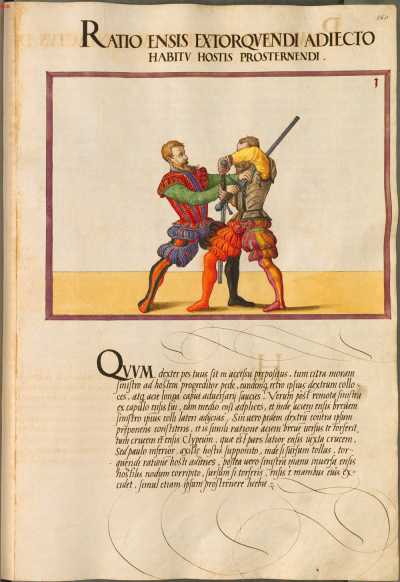 160
RATIO ENSIS EXTORQVENDI ADIECTO
HABITV HOSTIS PROSTERNENDI.
1
QVVM dexter pes tuus sit in accessu præpositus, tum citra moram
sinistro ad hostem progrediere pede, eundemq. retro ipsius dextrum collo=
ces, atq. acie longa caput adversarij saucies. Verum post remota sinistra
ex capulo ensis tui, eam medio ensi adplices, et inde aciem ensis brevem
sinistro ipsius colli lateri adicias. Sin vero pedem dextrum contra ipsum
præponens constiteris, et is simili ratione aciem brevi versus te torserit,
tum crucem et ensis Clypeum, quæ est pars latior ensis iuxta crucem,
sed paulo inferior, axillæ hostis supponito, inde si sursum tollas, tor=
quendi rationem hosti adimes, postea vero sinistra manu inversa ensis
hostilis nodum corripito, sursum si torseris, ensis è manibus eius ex=
cidet, simul etiam ipsum prosternere licebit.